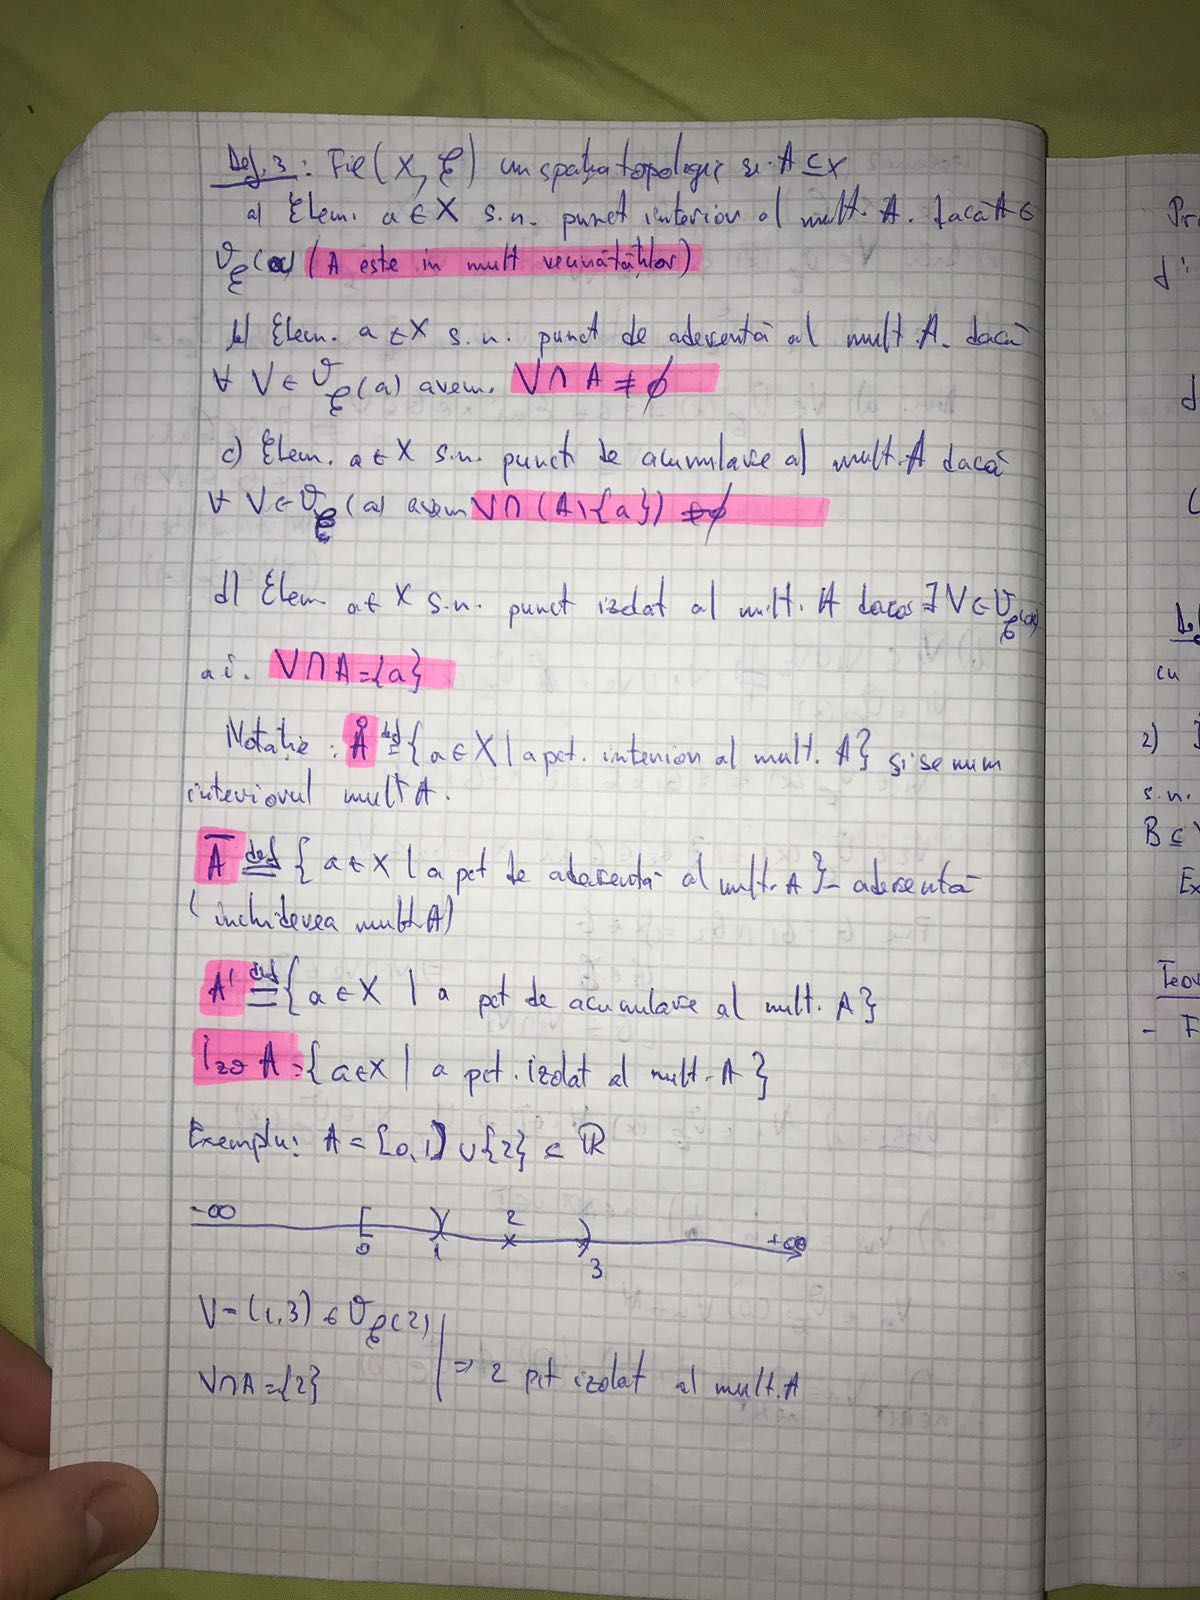 Def. 3: Fie (X, ℰ) un spațiu topologic și A ⊆ X
a) Elem. a ∈ X s.n. punct interior al mult. A. dacă A ∈
𝒱ℰ(a) (A este in mult vecinătăților)
b) Elem. a ∈ X s.n. punct de aderentă al mult A. dacă
∀ V ∈ 𝒱ℰ(a) avem. V ∩ A ≠ ∅
c) Elem. a ∈ X s.n. punct de acumulare al mult. A dacă
∀ V ∈ 𝒱ℰ(a) avem V ∩ (A \ {a}) ≠ ∅
d) Elem a ∈ X s.n. punct izolat al mult. A daca ∃ V ∈ 𝒱ℰ(a)
a i. V ∩ A = {a}
Notație: Å def= {a ∈ X | a pct. interior al mult. A} și se num
interiorul mult A.
A̅ def= {a ∈ X | a pct de aderentă al mult. A} - aderentă
(inchiderea mult A)
A' def= {a ∈ X | a pct de acumulare al mult. A}
Izo A = {a ∈ X | a pct. izolat al mult. A}
Exemplu: A = [0, 1) ∪ {2} ⊂ ℝ
-∞ [ ) 2 ) +∞
0 1 3
V = (1, 3) ∈ 𝒱ℰ(2)
V ∩ A = {2} ⇒ 2 pct izolat al mult. A
Pr
d
d
(
Def
cu
2)
s.n.
B ⊆
Ex
Teor
- F